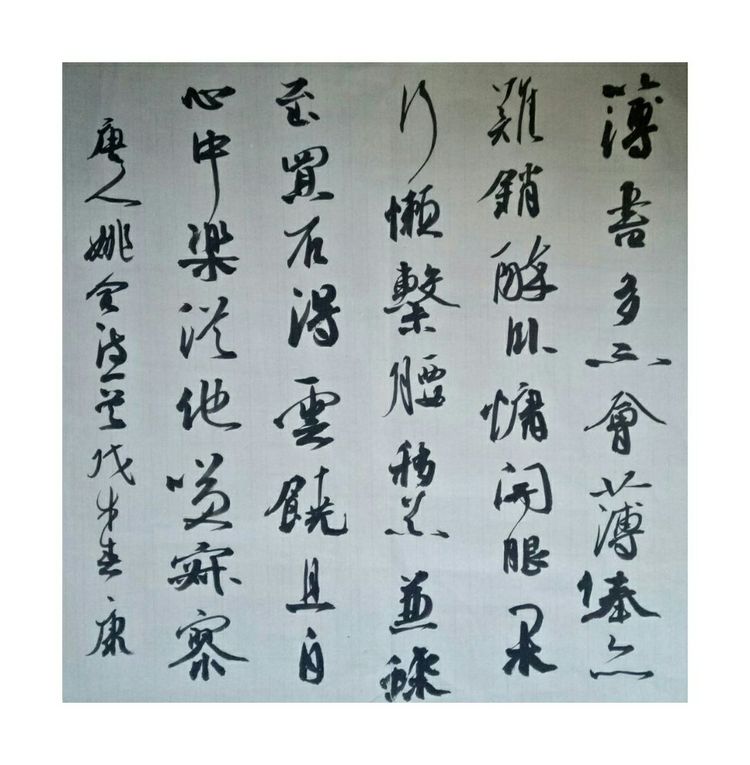 簿書多不會薄俸亦
難銷醉臥慵開眼閒
行懶繫腰移花兼蝶
至買石得雲饒且自
心中樂從他咲寂寥
唐人姚合詩一首戊春康